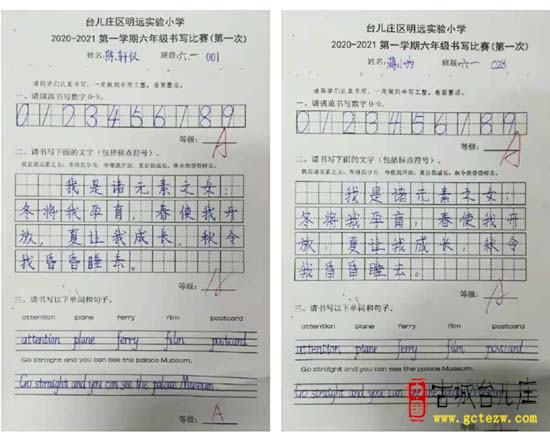 台儿庄区明远实验小学
2020-2021第一学期六年级书写比赛(第一次)
姓名: 班级:六一 001
请同学们认真书写,一定做到书写工整,卷面整洁。
一、请规范书写数字0-9。
0 1 2 3 4 5 6 7 8 9
等级: A
二、请书写下面的文字(包括标点符号)。
我是诸元素之女:冬将我孕育,春使我开放,夏让我成长,秋令我昏昏睡去。
我是诸元素之女:
冬将我孕育,春使我开
放,夏让我成长,秋令
我昏昏睡去。
等级: A
三、请书写以下单词和句子。
attention plane ferry film postcard
attention plane ferry film postcard
Go straight and you can see the palace Museum.
Go straight and you can see the palace Museum.
等级: A
台儿庄区明远实验小学
2020-2021第一学期六年级书写比赛(第一次)
姓名: 班级:六一 028
请同学们认真书写,一定做到书写工整,卷面整洁。
一、请规范书写数字0-9。
0 1 2 3 4 5 6 7 8 9
等级: A
二、请书写下面的文字(包括标点符号)。
我是诸元素之女:冬将我孕育,春使我开放,夏让我成长,秋令我昏昏睡去。
我是诸元素之女:
冬将我孕育,春使我开
放,夏让我成长,秋令
我昏昏睡去。
等级: A
三、请书写以下单词和句子。
attention plane ferry film postcard
attention plane ferry film postcard
Go straight and you can see the palace Museum.
Go straight and you can see the palace
中国 古城台儿庄
www.gctezw.com